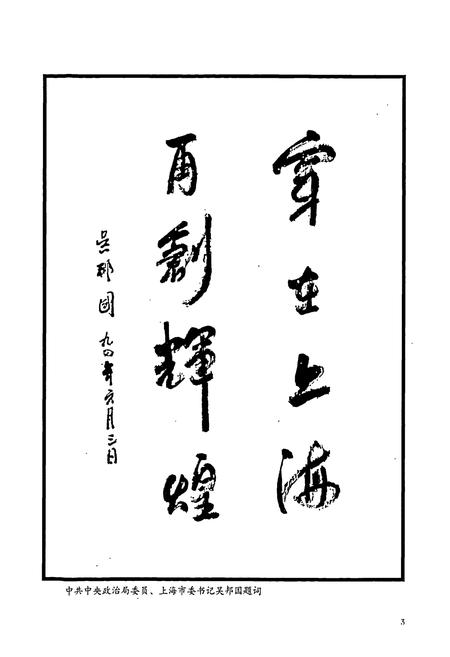 穿在上海
再創輝煌
吴邦国 九四年六月三日
中共中央政治局委员、上海市委书记吴邦国题词
3